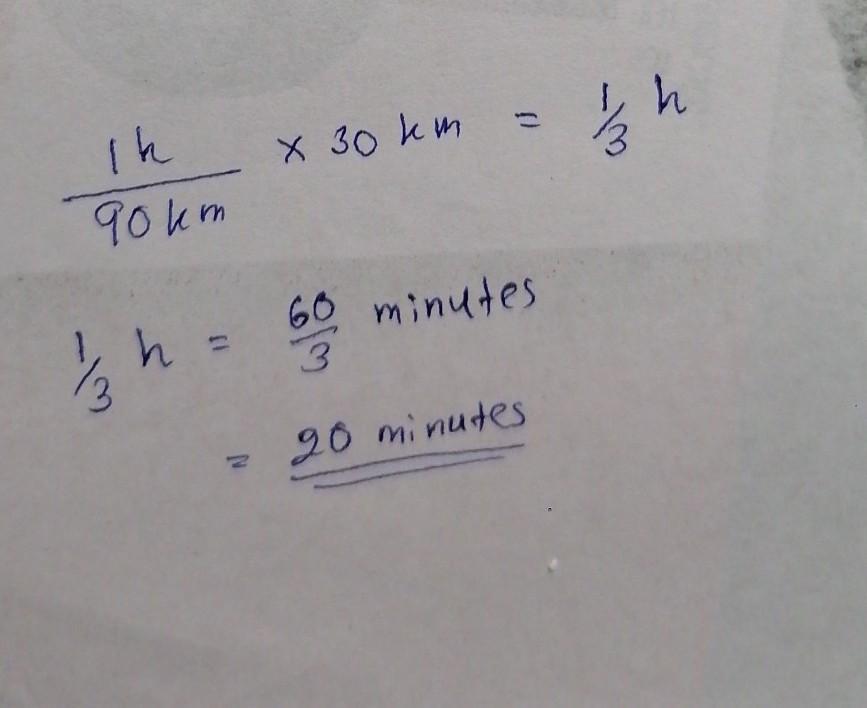 1h/90km × 30 km = 1/3 h
1/3 h = 60/3 minutes
= 20 minutes